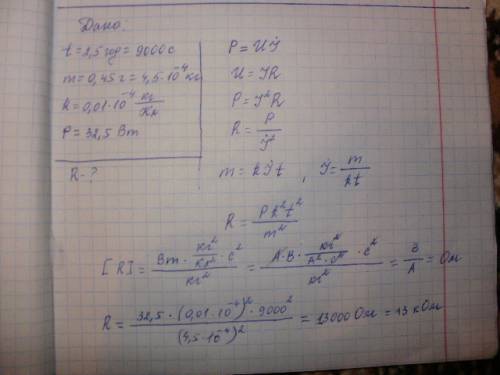 Дано:
t = 2,5 год = 9000 с
m = 0,45 г = 4,5·10⁻⁴ кг
k = 0,01·10⁻⁴ кг/Кл
P = 32,5 Вт
R - ?
P = UI
U = IR
P = I²R
R = P/I²
m = kIt , I = m/kt
R = Pk²t²/m²
[R] = (Вт · кг²/Кл² · с²)/кг² = (А·В · кг²/(А²·с²) · с²)/кг² = В/А = Ом
R = (32,5·(0,01·10⁻⁴)²·9000²)/(4,5·10⁻⁴)² = 13000 Ом = 13 кОм